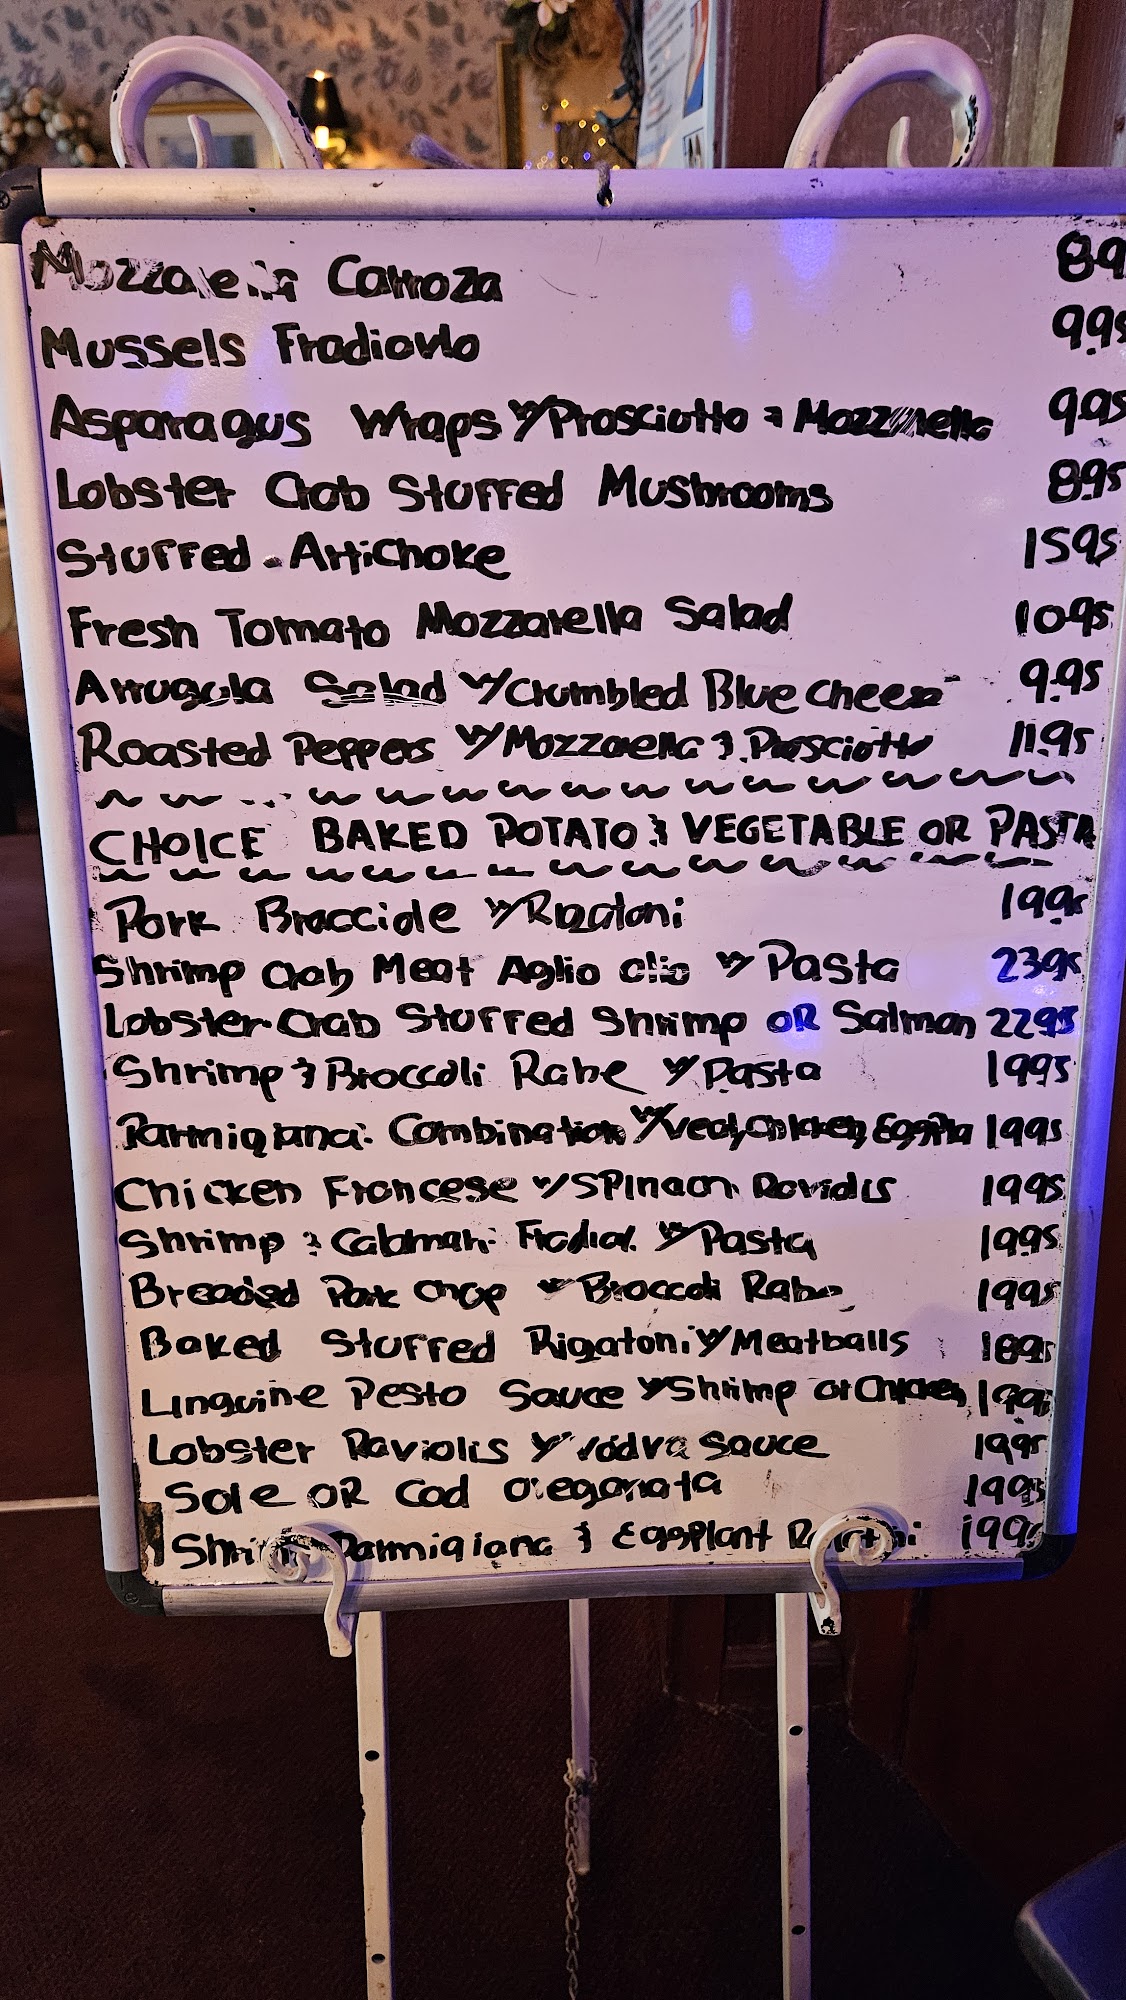 Mozzarella Carroza 89
Mussels Fradiavlo 9.95
Asparagus Wraps w/Prosciotto & Mozzarella 9.95
Lobster Crab Stuffed Mushrooms 8.95
Stuffed Artichoke 1595
Fresh Tomato Mozzarella Salad 10.95
Arrugula Salad w/Crumbled Blue Cheese 9.95
Roasted Peppers w/Mozzarella & Prosciotto 11.95
CHOICE BAKED POTATO & VEGETABLE OR PASTA
Pork Bracciole w/Rigatoni 19.95
Shrimp Crab Meat Aglio olio w/ Pasta 2395
Lobster Crab Stuffed Shrimp OR Salmon 2295
Shrimp & Broccoli Rabe w/Pasta 1995
Parmigiana: Combination w/veal, Chicken, Eggpla 1995
Chicken Francese w/SPinach Raviolis 1995
Shrimp & Calamari Fradial. w/Pasta 1995
Breaded Pork Chop w/ Broccoli Rabe 1995
Baked Stuffed Rigatoni w/Meatballs 1895
Linguine Pesto Sauce w/Shrimp or Chicken 1995
Lobster Raviolis w/ vodva Sauce 1995
Sole OR Cod oreganata 1995
Parmigiana & EggPlant 1995